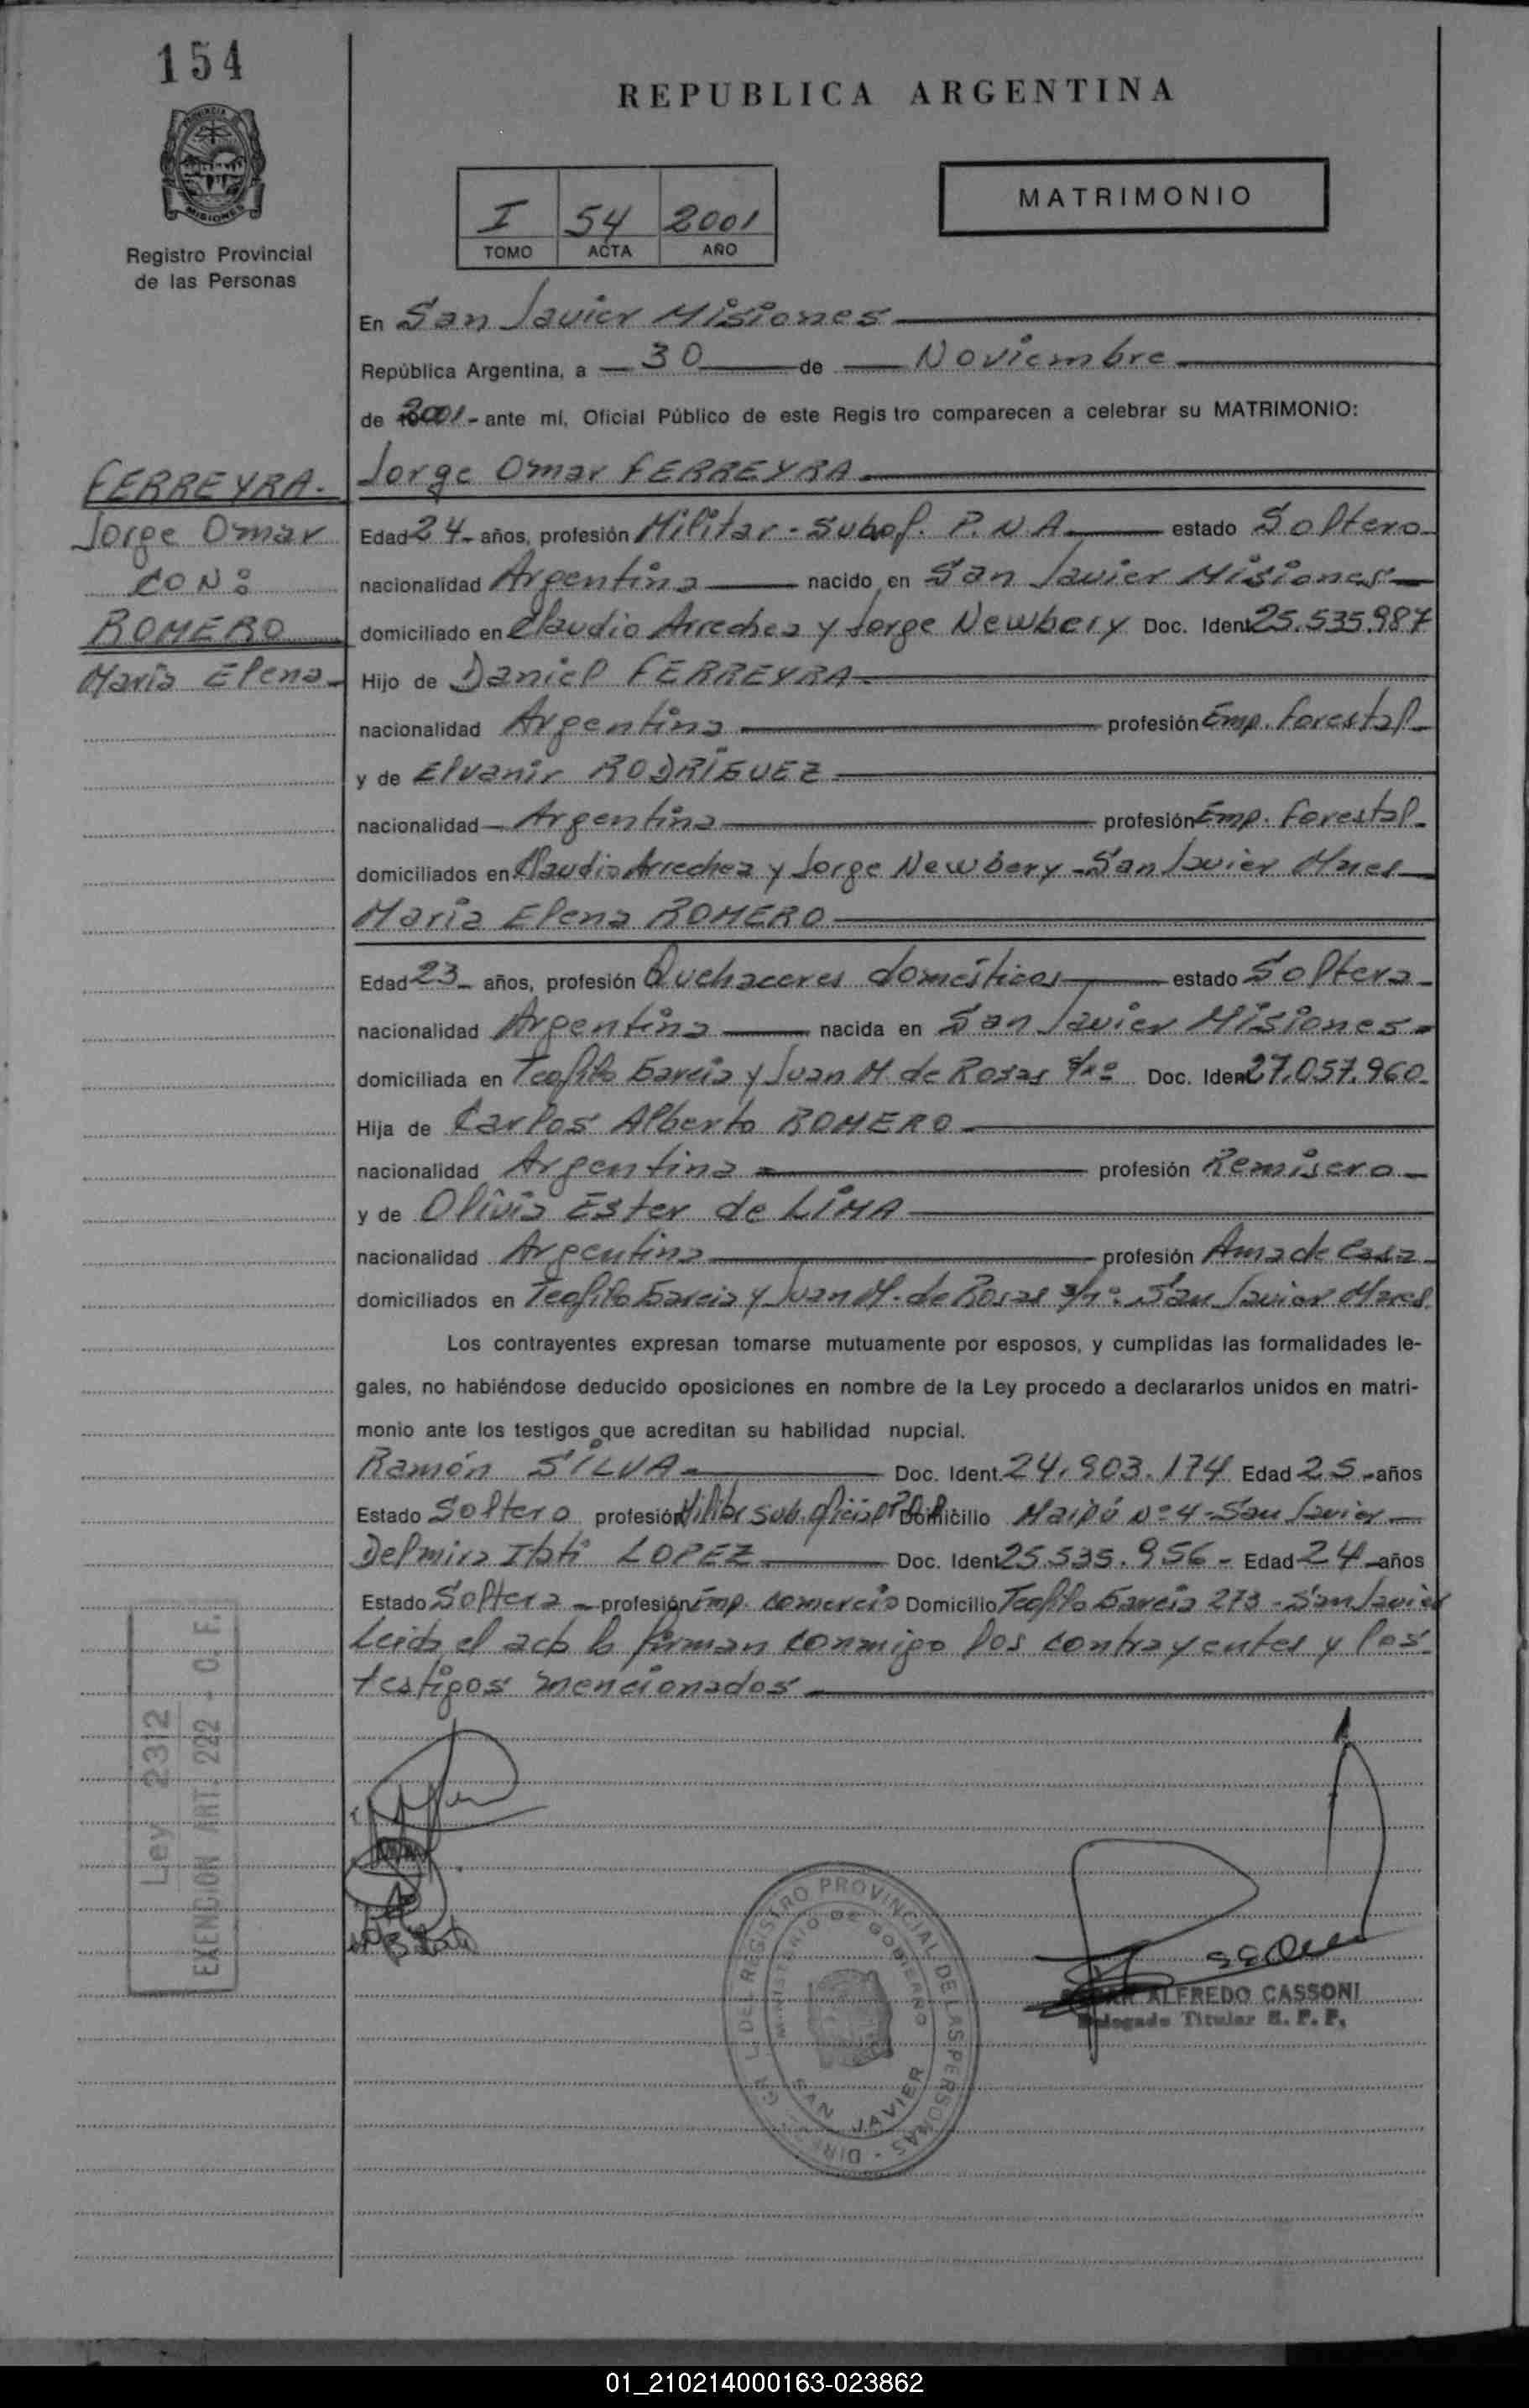 154
REPUBLICA ARGENTINA
PROVINCIA
MISIONES
Registro Provincial
de las Personas
I 54 2001
TOMO ACTA AÑO
MATRIMONIO
En San Javier Misiones
República Argentina, a 30 de Noviembre
de 2001 - ante mí, Oficial Público de este Regis tro comparecen a celebrar su MATRIMONIO:
FERREYRA.
Jorge Omar
CON:
ROMERO
María Elena
Jorge Omar FERREYRA
Edad 24 años, profesión Militar - Subof. P.N.A. estado Soltero
nacionalidad Argentina nacido en San Javier Misiones
domiciliado en Claudio Arrechea y Jorge Newbery Doc. Ident 25.535.987
Hijo de Daniel FERREYRA
nacionalidad Argentina profesión Emp. Forestal
y de Elvanir RODRÍGUEZ
nacionalidad Argentina profesión Emp. Forestal
domiciliados en Claudio Arrechea y Jorge Newbery - San Javier Mnes
María Elena ROMERO
Edad 23 años, profesión Quehaceres domésticos estado Soltera
nacionalidad Argentina nacida en San Javier Misiones
domiciliada en Teofilo García y Juan M. de Rosas s/nº Doc. Ident 27.057.960
Hija de Carlos Alberto ROMERO
nacionalidad Argentina profesión Remisero
y de Olivia Ester de LIMA
nacionalidad Argentina profesión Ama de Casa
domiciliados en Teofilo García y Juan M. de Rosas s/nº San Javier Mnes
Los contrayentes expresan tomarse mutuamente por esposos, y cumplidas las formalidades le-
gales, no habiéndose deducido oposiciones en nombre de la Ley procedo a declararlos unidos en matri-
monio ante los testigos que acreditan su habilidad nupcial.
Ramón SILVA Doc. Ident. 24.903.174 Edad 25 años
Estado Soltero profesión Militar sub. oficial Domicilio Maipú Nº 4 - San Javier
Delmira Itatí LOPEZ Doc. Ident 25.535.956 - Edad 24 años
Estado Soltera profesión Emp. comercio Domicilio Teofilo García 273 - San Javier
Leída el acta la firman conmigo los contrayentes y los
testigos mencionados
Ley 2312
EXENCION ART. 222 - C.F.
DIREC. GRAL. DEL REGISTRO PROVINCIAL DE LAS PERSONAS
MINISTERIO DE GOBIERNO
SAN JAVIER
ALFREDO CASSONI
Delegado Titular R. P. P.
01_210214000163-023862